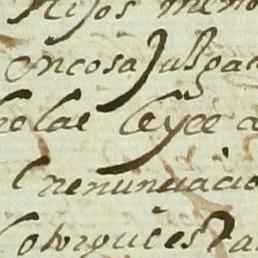 hijos meno
encosa Jusgad
Leyee
renunciacio
otorgue esta